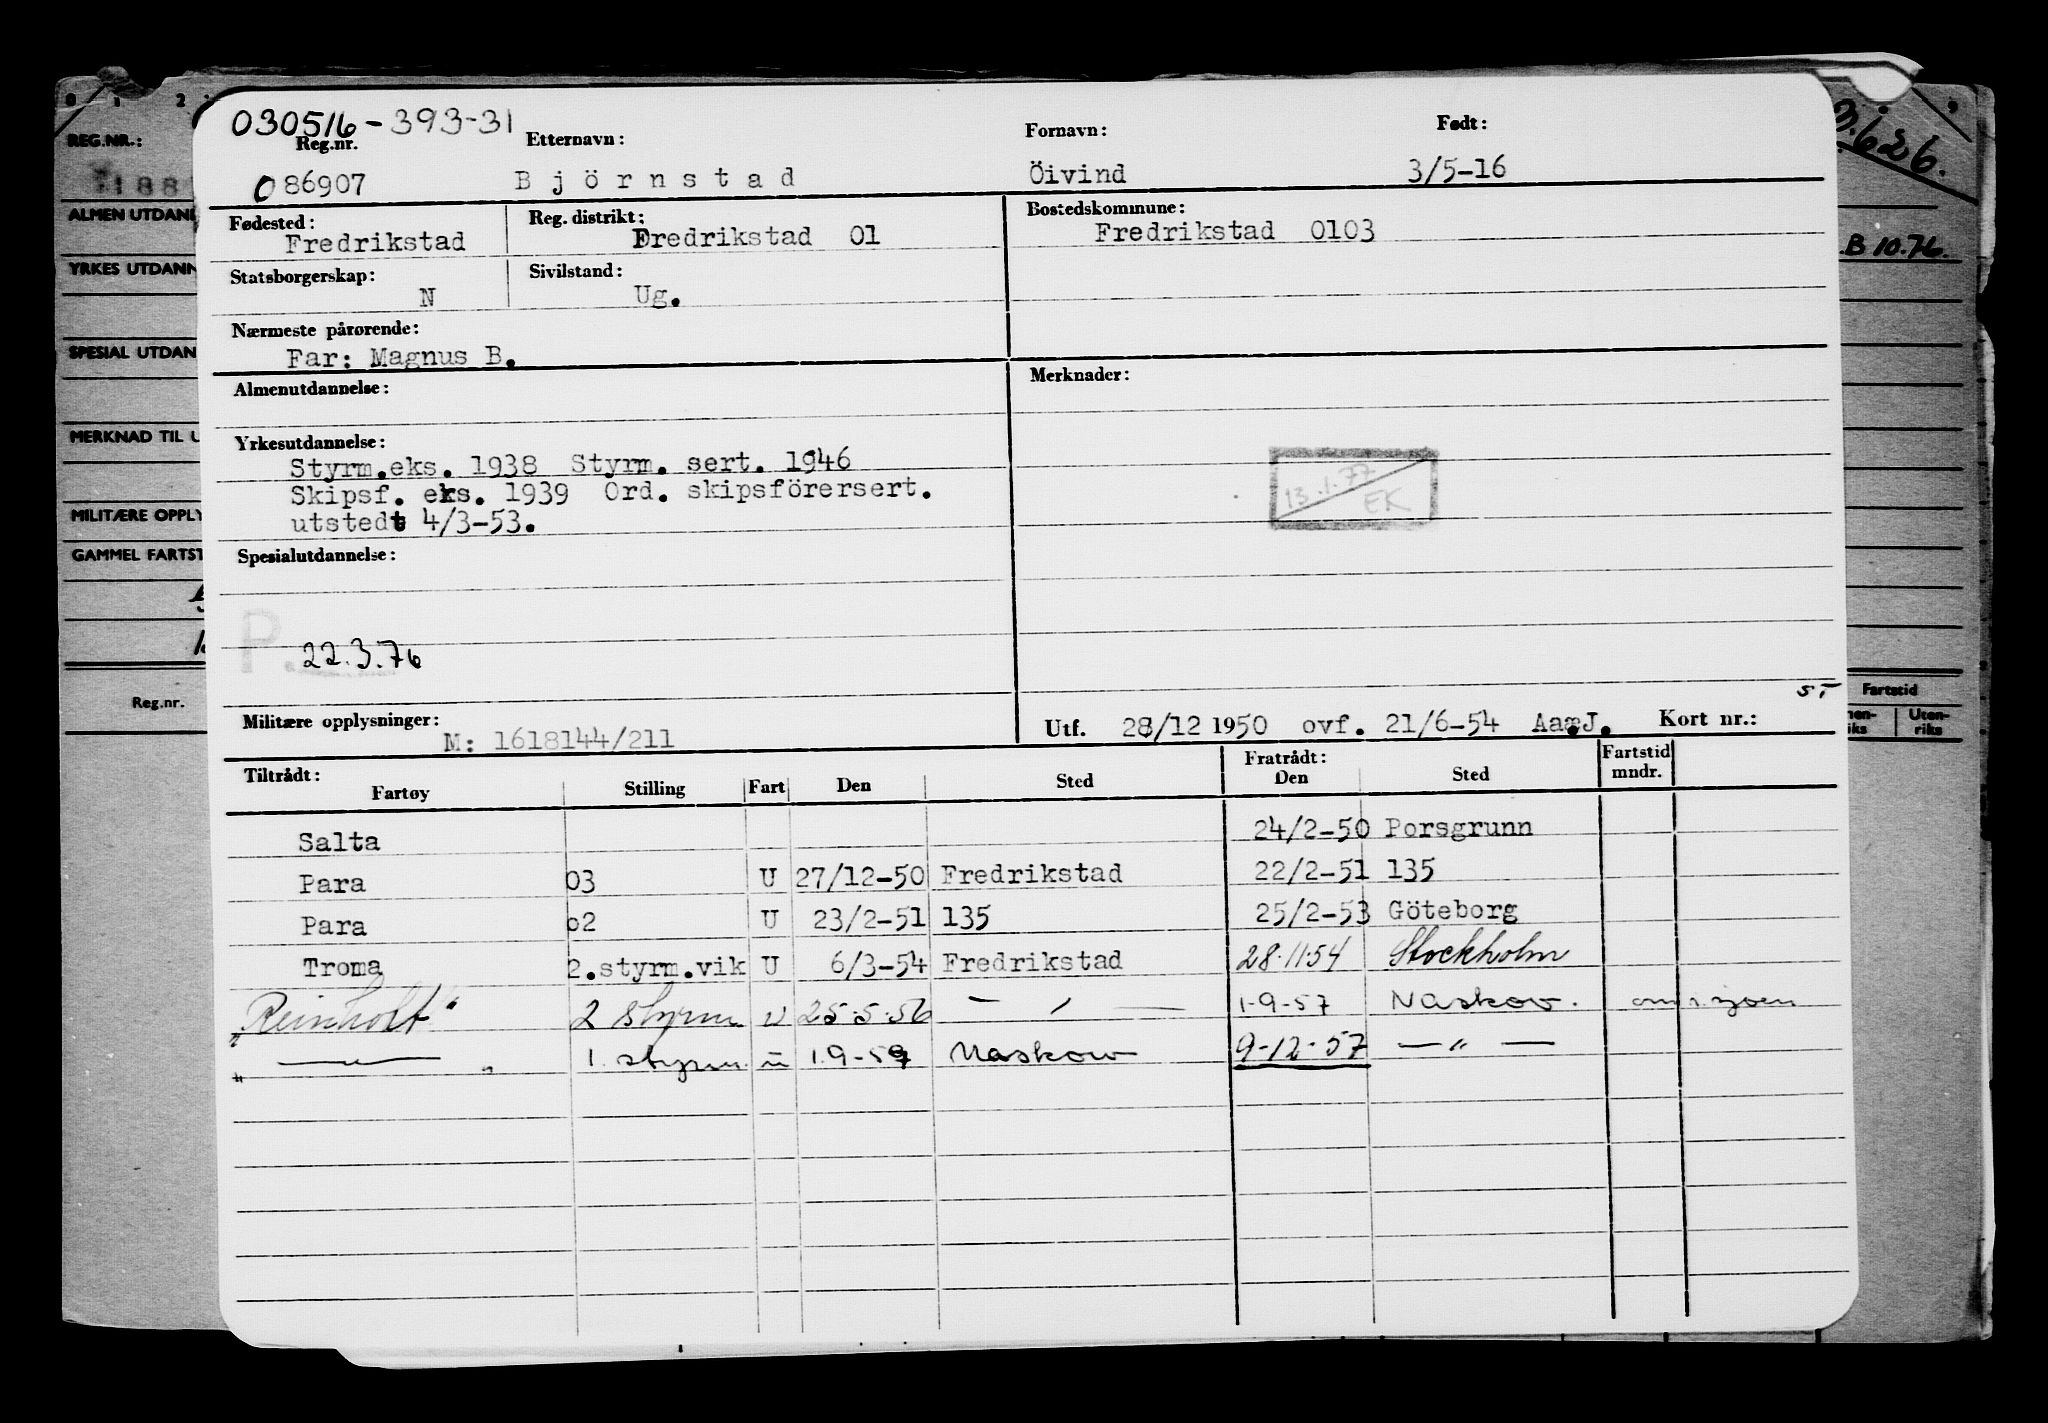 030516-393-31
Reg.nr. Etternavn: Fornavn: Født:
086907 Björnstad Öivind 3/5-16
Fødested: Reg. distrikt: Bostedskommune:
Fredrikstad Fredrikstad 01 Fredrikstad 0103
Statsborgerskap: Sivilstand:
N Ug.
Nærmeste pårørende:
Far: Magnus B.
Almenutdannelse: Merknader:
Yrkesutdannelse:
Styrm.eks. 1938 Styrm. sert. 1946
Skipsf. eks. 1939 Ord. skipsförersert.
utstedt 4/3-53.
13.1.77
EK
Spesialutdannelse:
P. 22.3.76
Militære opplysninger: Utf. 28/12 1950 ovf. 21/6-54 Aa.J. Kort nr.:
M: 1618144/211
Tiltrådt: Fratrådt: Fartstid
Fartøy Stilling Fart Den Sted Den Sted mndr.
Salta 24/2-50 Porsgrunn
Para 03 U 27/12-50 Fredrikstad 22/2-51 135
Para 02 U 23/2-51 135 25/2-53 Göteborg
Troma 2.styrm.vik U 6/3-54 Fredrikstad 28.11.54 Stockholm
"Reinholt" 2 styrm u 25.5.56 — ′ — 1-9-57 Naskov.
" — " 1. styrm. u 1.9-57 Naskow 9-12-57 — " —
REG.NR.:
ALMEN UTDANN
YRKES UTDANN
SPESIAL UTDAN
MERKNAD TIL U
MILITÆRE OPPLY
GAMMEL FARTST
Reg.nr.
3.626.
B 10.76.
Fartstid
Uten-
riks